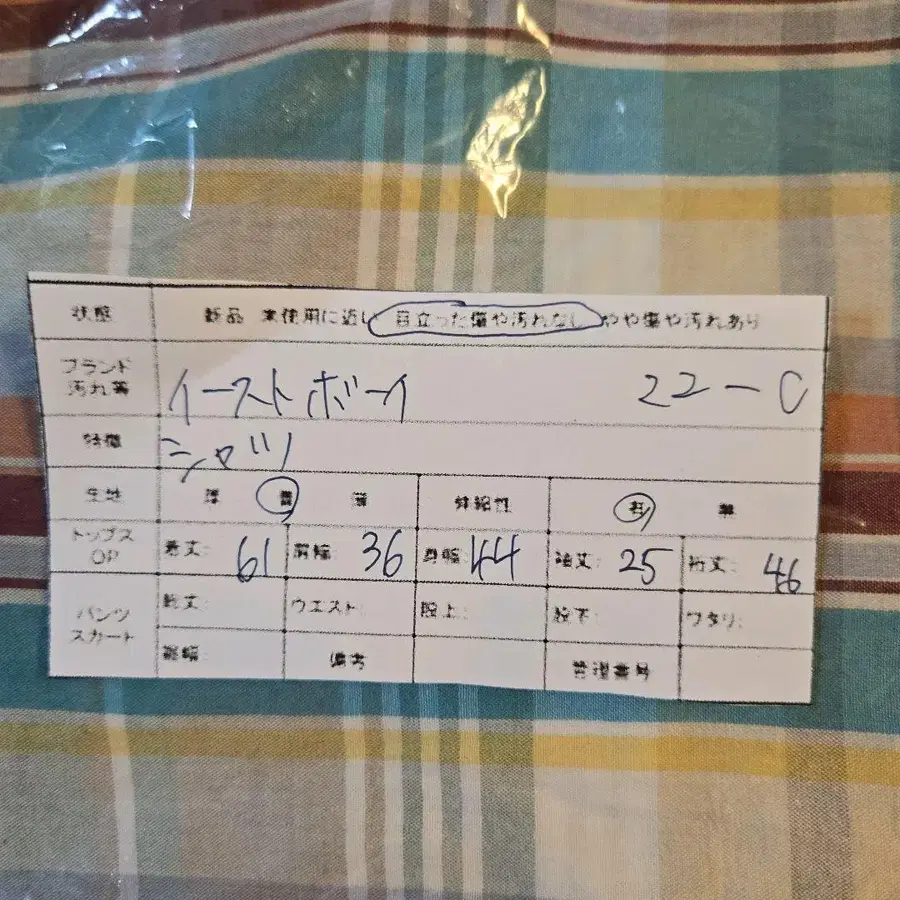 状態 新品 未使用に近い 目立った傷や汚れなし やや傷や汚れあり
ブランド
汚れ等 イーストボーイ 22-C
特徴 シャツ
生地 厚 普 薄 伸縮性 有 無
トップス
OP 着丈: 61 肩幅: 36 身幅: 44 袖丈: 25 裄丈: 46
パンツ
スカート 総丈: ウエスト: 股上: 股下: ワタリ:
裾幅: 備考 管理番号